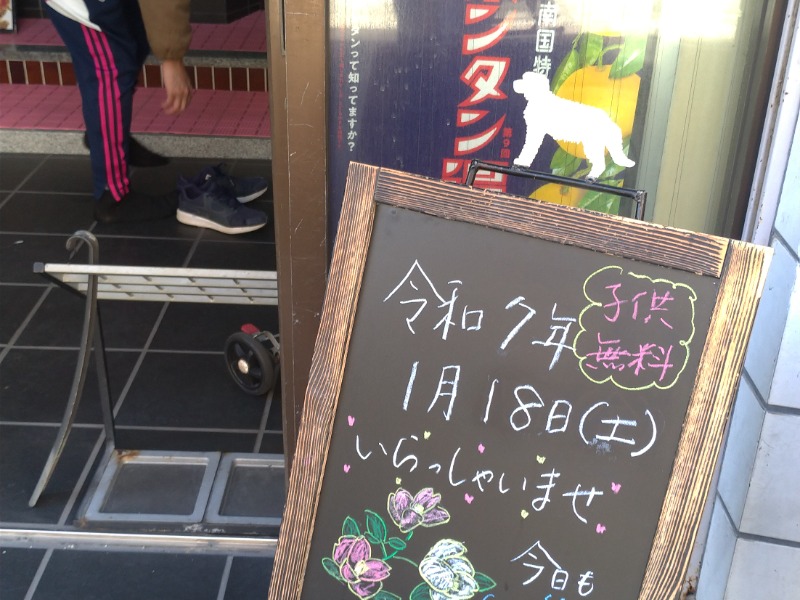 南国特
ンタン
第9回
タンって知ってますか?
子供
無料
令和7年
1月18日(土)
いらっしゃいませ
今日も